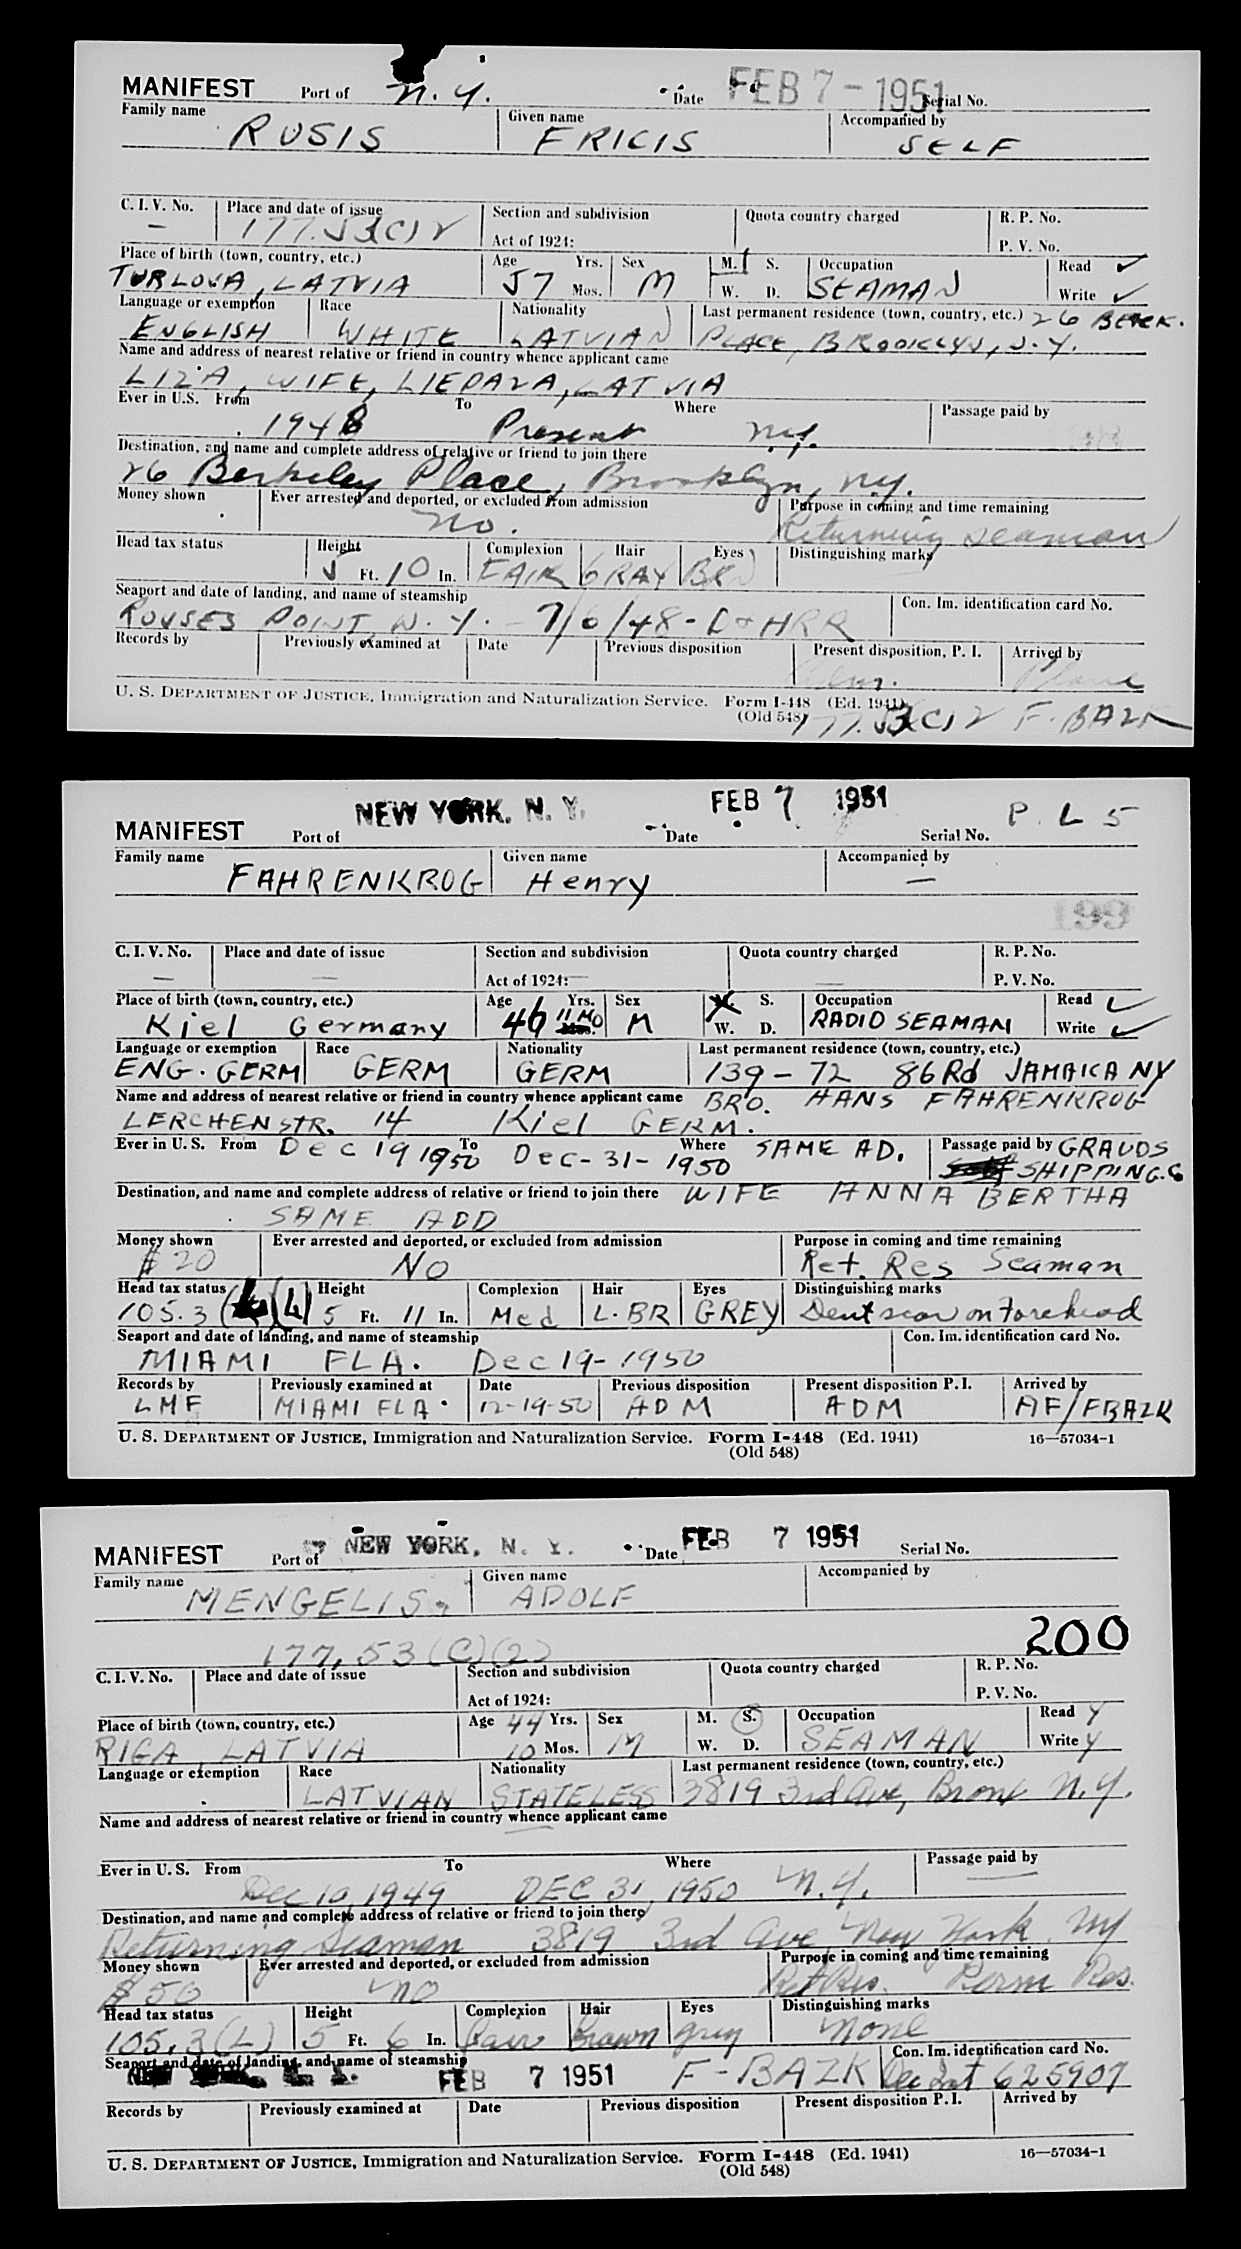 MANIFEST Port of N.Y. Date FEB 7 - 1951 Serial No.
Family name RUSIS Given name FRICIS Accompanied by SELF
C. I. V. No. — Place and date of issue 177.53(C)2 Section and subdivision Quota country charged R. P. No.
Act of 1924: P. V. No.
Place of birth (town, country, etc.) Age Yrs. Sex M. S. Occupation Read ✓
TURLOVA, LATVIA 57 Mos. M W. D. SEAMAN Write ✓
Language or exemption Race Nationality Last permanent residence (town, country, etc.) 26 BERK.
ENGLISH WHITE LATVIAN PLACE, BROOKLYN, N.Y.
Name and address of nearest relative or friend in country whence applicant came
LIZA, WIFE, LIEPAZA, LATVIA
Ever in U.S. From To Where Passage paid by
1948 Present N.Y.
Destination, and name and complete address of relative or friend to join there
26 Berkeley Place, Brooklyn, N.Y.
Money shown Ever arrested and deported, or excluded from admission Purpose in coming and time remaining
No. Returning seaman
Head tax status Height Complexion Hair Eyes Distinguishing marks
5 Ft. 10 In. FAIR GRAY BRN
Seaport and date of landing, and name of steamship Con. Im. identification card No.
ROUSES POINT N.Y. - 7/6/48 - D+HRR
Records by Previously examined at Date Previous disposition Present disposition, P. I. Arrived by
Adm. Plane
U. S. DEPARTMENT OF JUSTICE, Immigration and Naturalization Service. Form I-448 (Ed. 1941)
(Old 548) 177.53(C)2 F-BAZK
MANIFEST Port of NEW YORK, N. Y. Date FEB 7 1951 Serial No. P. L 5
Family name FAHRENKROG Given name Henry Accompanied by —
199
C. I. V. No. — Place and date of issue — Section and subdivision Quota country charged — R. P. No.
Act of 1924: — P. V. No.
Place of birth (town, country, etc.) Age Yrs. Sex M. S. Occupation Read ✓
Kiel Germany 46 11 MO Mos. M W. D. RADIO SEAMAN Write ✓
Language or exemption Race Nationality Last permanent residence (town, country, etc.)
ENG. GERM GERM GERM 139-72 86Rd JAMAICA NY
Name and address of nearest relative or friend in country whence applicant came BRO. HANS FAHRENKROG
LERCHENSTR. 14 Kiel GERM.
Ever in U. S. From Dec 19 1950 To Dec-31-1950 Where SAME AD. Passage paid by GRAUDS
SHIPPING.C
Destination, and name and complete address of relative or friend to join there WIFE ANNA BERTHA
SAME ADD
Money shown Ever arrested and deported, or excluded from admission Purpose in coming and time remaining
$20 NO Ret. Res Seaman
Head tax status Height Complexion Hair Eyes Distinguishing marks
105.3 (L) 5 Ft. 11 In. Med L.BR GREY Dent scar on Forehead
Seaport and date of landing, and name of steamship Con. Im. identification card No.
MIAMI FLA. Dec 19-1950
Records by Previously examined at Date Previous disposition Present disposition P. I. Arrived by
LMF MIAMI FLA. 12-19-50 ADM ADM AF/FBAZK
U. S. DEPARTMENT OF JUSTICE, Immigration and Naturalization Service. Form I-448 (Ed. 1941) 16—57034-1
(Old 548)
MANIFEST Port of NEW YORK, N. Y. Date FEB 7 1951 Serial No.
Family name MENGELIS Given name ADOLF Accompanied by
177.53(C)(2) 200
C. I. V. No. Place and date of issue Section and subdivision Quota country charged R. P. No.
Act of 1924: P. V. No.
Place of birth (town, country, etc.) Age 44 Yrs. Sex M. S. Occupation Read Y
RIGA, LATVIA 10 Mos. M W. D. SEAMAN Write Y
Language or exemption Race Nationality Last permanent residence (town, country, etc.)
LATVIAN STATELESS 3819 3rd Ave, Bronx N.Y.
Name and address of nearest relative or friend in country whence applicant came
Ever in U. S. From To Where Passage paid by
Dec 10, 1949 DEC 31, 1950 N.Y. —
Destination, and name and complete address of relative or friend to join there
Returning Seaman 3819 3rd Ave New York, NY
Money shown Ever arrested and deported, or excluded from admission Purpose in coming and time remaining
$50 NO Ret Res. Perm Res.
Head tax status Height Complexion Hair Eyes Distinguishing marks
105.3(L) 5 Ft. 6 In. fair brown grey none
Seaport and date of landing, and name of steamship Con. Im. identification card No.
FEB 7 1951 F-BAZK 625907
Records by Previously examined at Date Previous disposition Present disposition P. I. Arrived by
U. S. DEPARTMENT OF JUSTICE, Immigration and Naturalization Service. Form I-448 (Ed. 1941) 16—57034-1
(Old 548)